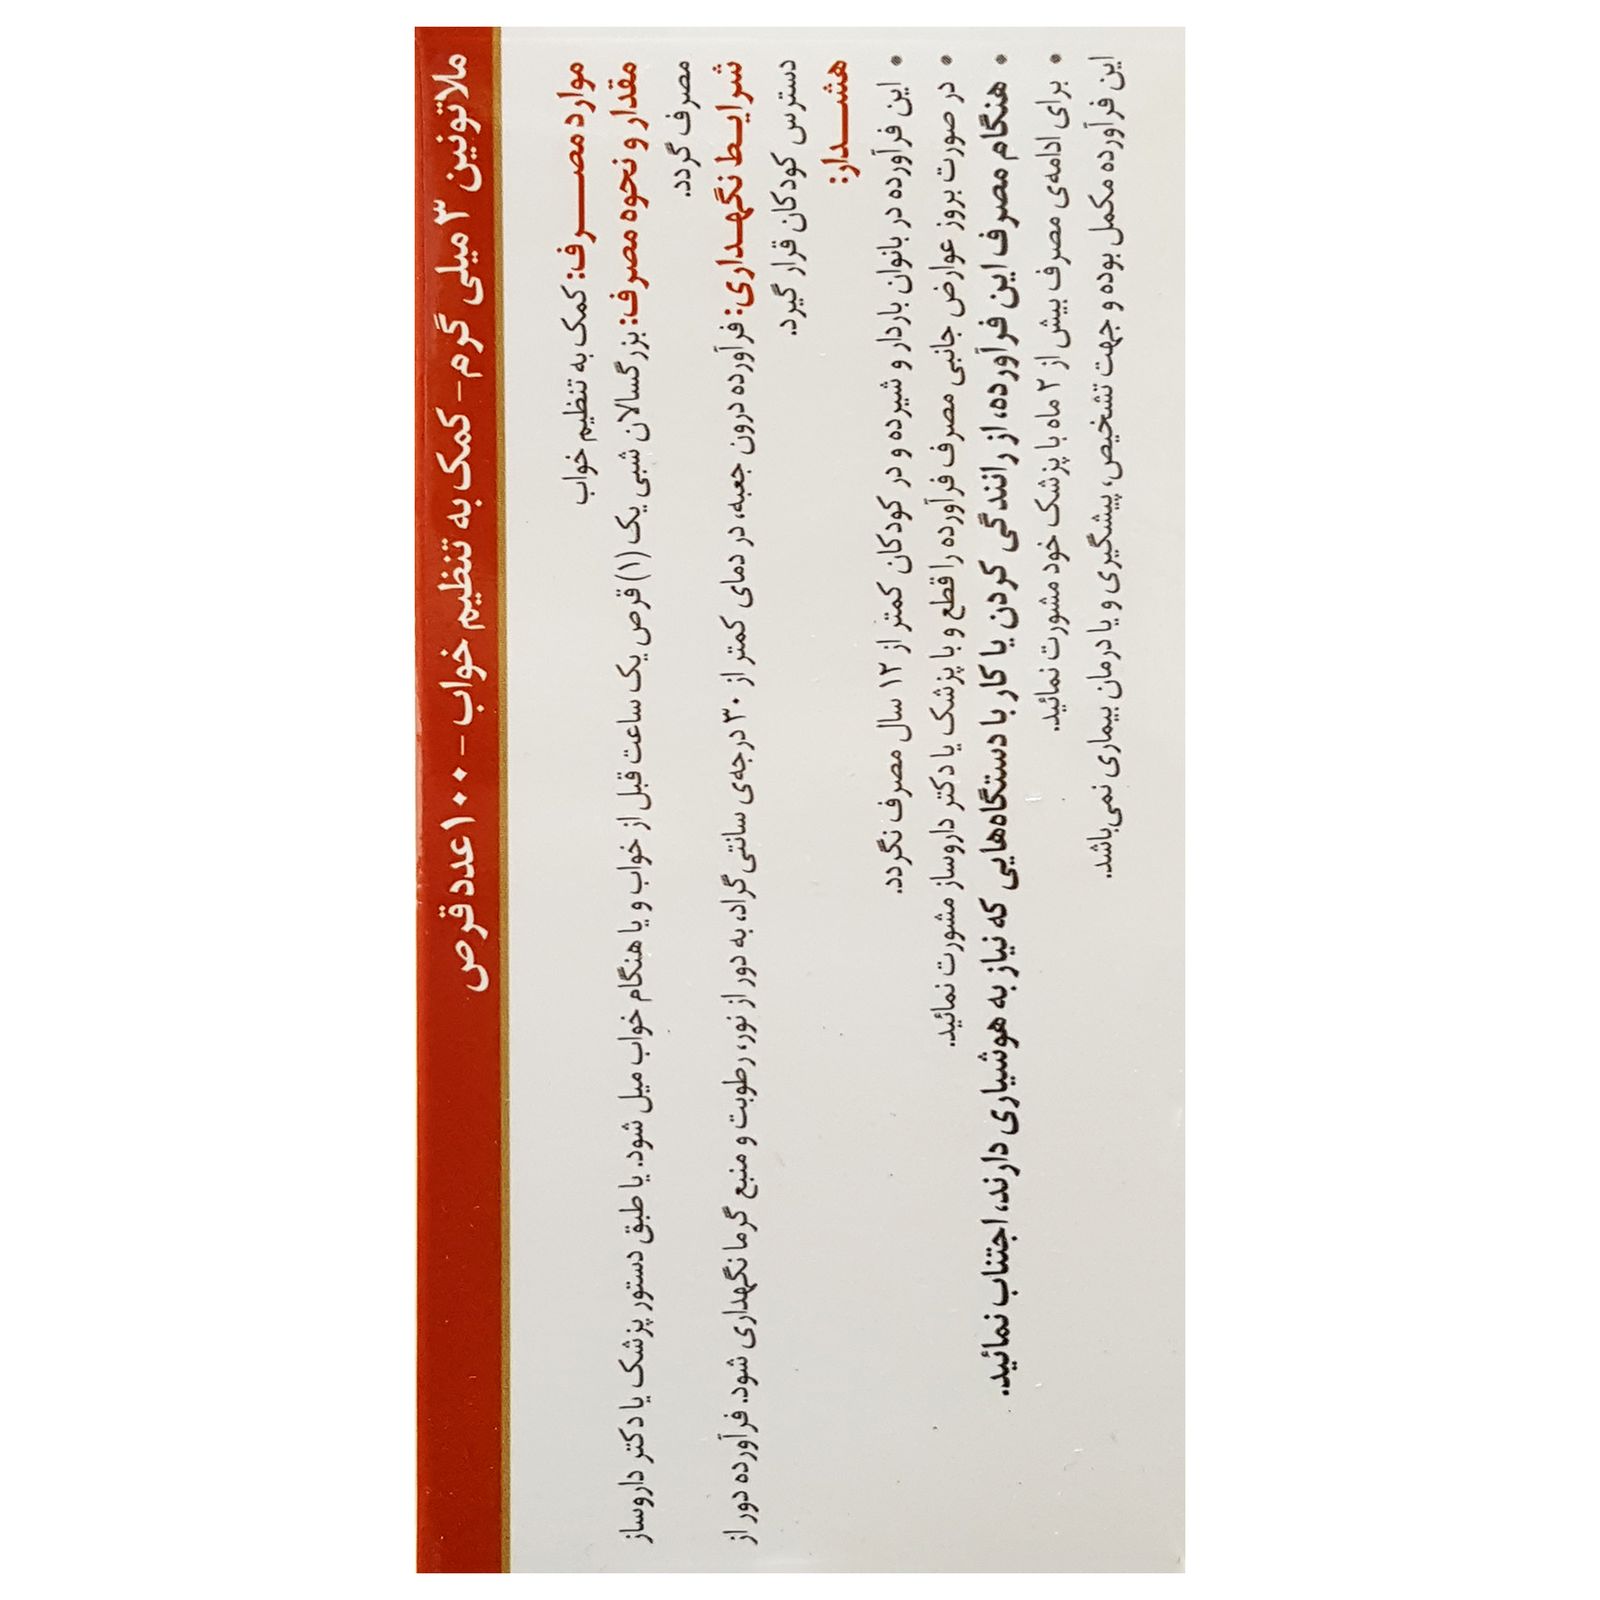 ملاتونین ۳ میلی گرم - کمک به تنظیم خواب - ۱۰۰ عدد قرص
موارد مصـــــرف: کمک به تنظیم خواب
مقدار و نحوه مصرف: بزرگسالان شبی یک (۱) قرص یک ساعت قبل از خواب و یا هنگام خواب میل شود. یا طبق دستور پزشک یا دکتر داروساز
مصرف گردد.
شرایـط نگهـداری: فرآورده درون جعبه، در دمای کمتر از ۳۰ درجه‌ی سانتی گراد، به دور از نور، رطوبت و منبع گرما نگهداری شود. فرآورده دور از
دسترس کودکان قرار گیرد.
هشـــدار:
• این فرآورده در بانوان باردار و شیرده و در کودکان کمتر از ۱۲ سال مصرف نگردد.
• در صورت بروز عوارض جانبی مصرف فرآورده را قطع و با پزشک یا دکتر داروساز مشورت نمائید.
• هنگام مصرف این فرآورده، از رانندگی کردن یا کار با دستگاه‌هایی که نیاز به هوشیاری دارند، اجتناب نمائید.
• برای ادامه‌ی مصرف بیش از ۲ ماه با پزشک خود مشورت نمائید.
این فرآورده مکمل بوده و جهت تشخیص، پیشگیری و یا درمان بیماری نمی‌باشد.